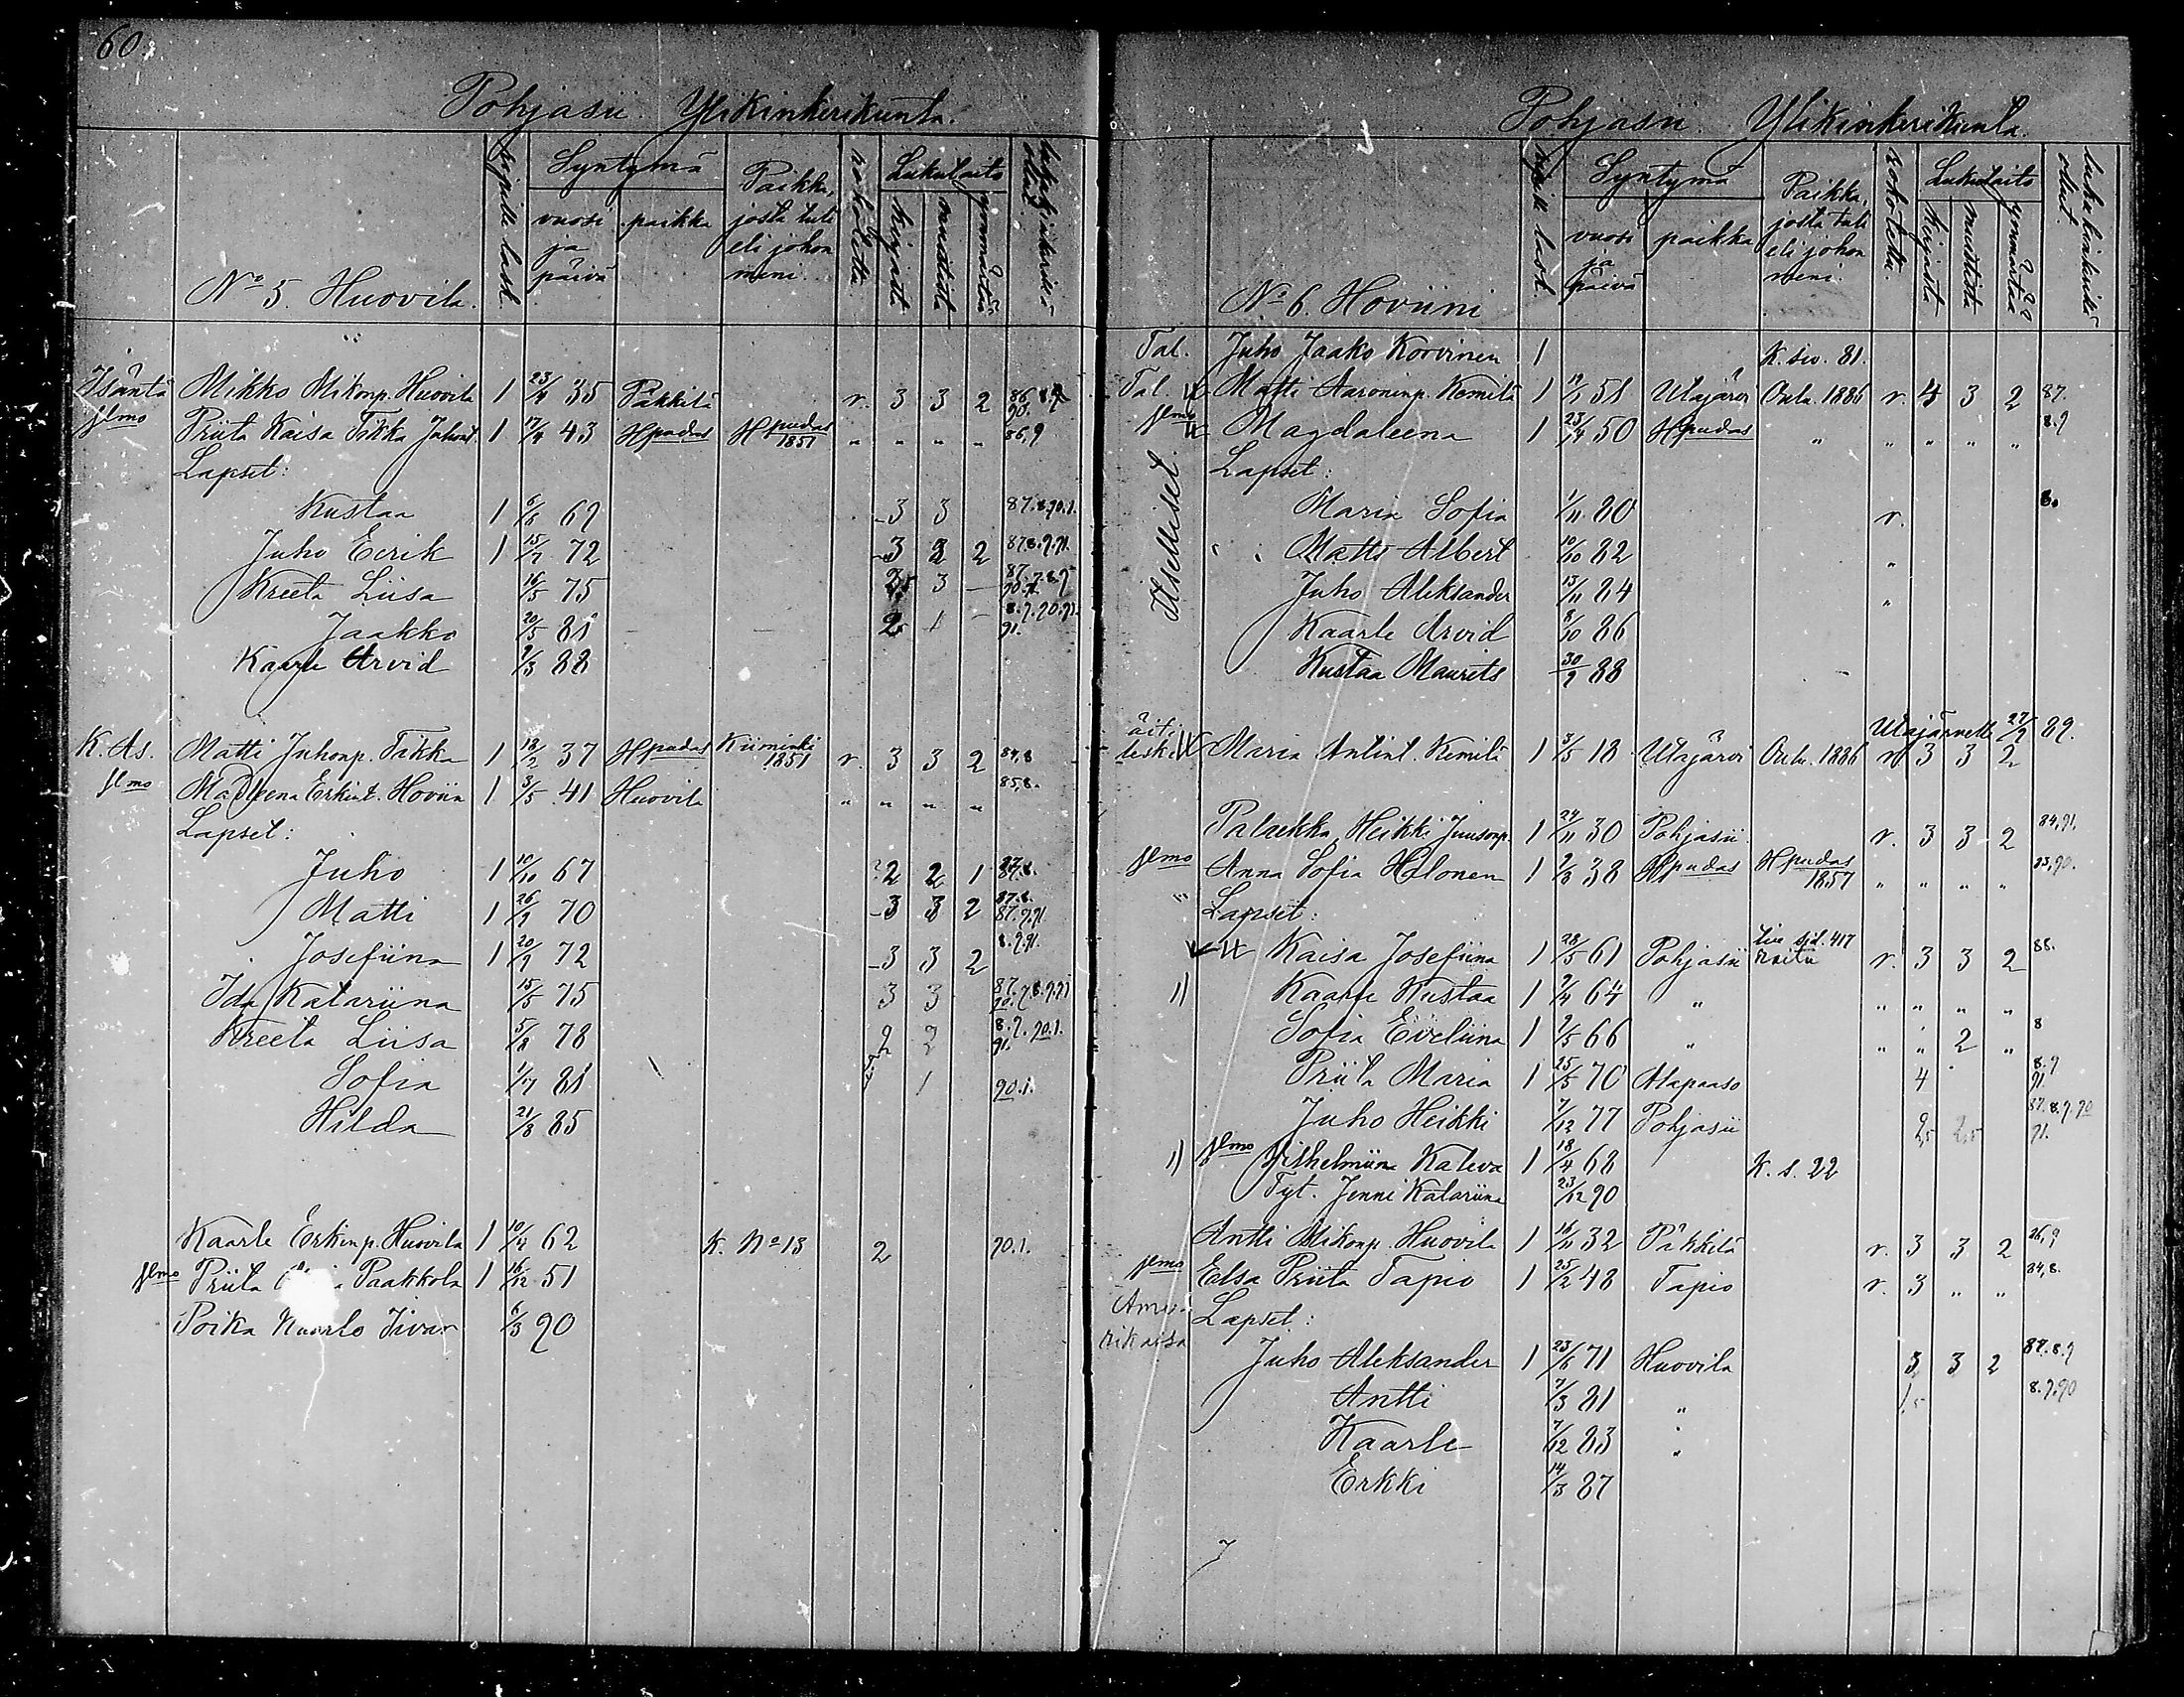 60.
Pohjasii Ylikinkerikunta.
Syntymä
Lukutaito
vuosi ja päivä
paikka
Paikka, josta tuli eli johon meni.
rokotettu
kirjasta
muistista
ymmärtää
No 5. Huovila.
Isäntä Mikko Mikonp. Huovila 1 23/4 35 Päkkilä r. 3 3 2
Priita Kaisa Tikka Juhont. 1 17/4 43 Hpudas Hpudas 1857 " " " " 86,9
Lapset:
Kustaa 1 6/8 69 3 3 87.8.90.1.
Juho Eerik 1 15/7 72 3 3 2 87.8.9.91.
Kreeta Liisa 16/5 75 3 -
Jaakko 20/5 81 2 1 - 8.9.90.91. 91.
Kaarle Arvid 9/3 88
K. As. Matti Juhonp. Tikka 1 18/2 37 Hpudas Kiiminki 1851 r. 3 3 2 84,8
Madleena Erkint. Hoviin 1 3/5 41 Huovila " " " " 85,8.
Lapset:
Juho 1 10/10 67 2 2 1
Matti 1 26/9 70 3 3 2 87.8. 87.9.91.
Josefiina 1 20/9 72 3 3 2 8.9.91.
Ida Katariina 15/5 75 3 3
Kreeta Liisa 5/8 78 2 2 8.9.90.1. 91.
Sofia 1/7 81 1 90.1.
Hilda 21/8 85
Kaarle Erkinp. Huovila 1 10/4 62 K. No 13 2 90.1.
Priita Paakkola 1 16/12 51
Poika Kaarlo Iivar 6/3 90
Pohjasii Ylikinkerikunta.
Syntymä
Lukutaito
vuosi ja päivä
paikka
Paikka, josta tuli eli johon meni.
rokotettu.
kirjasta
muistista
ymmärtää
No 6. Hoviini
Tal. Juho Jaako Korvinen 1 K. siv. 81.
Tal. Matti Aaroninp. Kemilä 1 19/1 51 Utajärvi Oulu. 1886 r. 4 3 2 87.
Magdaleena 1 50 Hpudas " " " " " 8.9
Itselliset.
Lapset:
Maria Sofia 1/11 80 r. 8.
Matti Albert 10/10 82 "
Juho Aleksander 13/11 84 "
Kaarle Arvid 8/10 86
Kustaa Maurits 30/9 88
Utajärvelle 27/9 89.
äiti leski Maria Antint. Kemilä 1 3/5 18 Utajärvi Oulu. 1886 r 3 3 2
Palaekka Heikki Juusonp. 1 24/11 30 Pohjasii r. 3 3 2 84,91.
Anna Sofia Halonen 1 2/8 38 Hpudas Hpudas 1857 " " " "
Lapset:
Kaisa Josefiina 1 28/5 61 Pohjasii r. 3 3 2 88.
1) Kaarle Kustaa 1 2/4 64 " " " " "
Sofia Eveliina 1 9/5 66 " " " 2 " 8
Priita Maria 1 25/5 70 Alapaaso 4 8.9 91.
Juho Heikki 7/12 77 Pohjasii 2,5 2,5 87.8.9.90 91.
1) Vilhelmiina Kaleva 1 18/4 68 K. s. 22
Tyt. Jenni Katariina 23/12 90
Antti Mikonp. Huovila 1 16/11 32 Päkkilä r. 3 3 2 86,9
Elsa Priita Tapio 1 25/2 48 Tapio r. 3 " " 84,8.
Amerikassa
Lapset:
Juho Aleksander 1 23/6 71 Huovila 3 3 2 87.8.9
Antti 7/3 81 " 1,5 8.9.90
Kaarle 7/12 83 "
Erkki 14/3 87